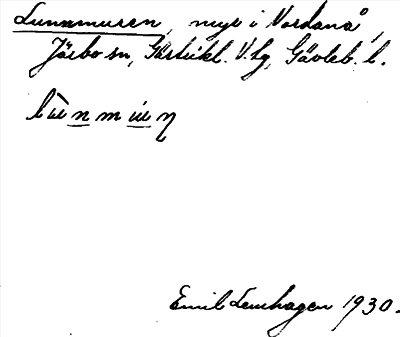 Lunnmuren, myr i Nordanå,
Järbo sn, Gästrikl. V.lg, Gävleb. l.
lùnmúŋ
Emil Lemhagen 1930.